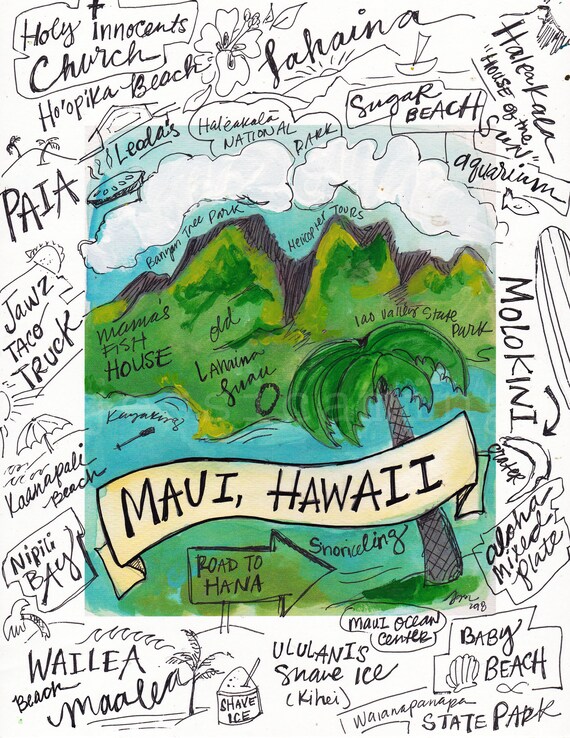 Holy Innocents
Church
Ho'opika Beach
Lahaina
Sugar
BEACH
Haleakala
"HOUSE of the
SUN"
aquarium
Leoda's
Haleakalā
NATIONAL PARK
PAIA
Banyan Tree Park
Helicopter TOURS
JAWZ
TACO
TRUCK
mama's
FISH
HOUSE
old
LAHAINA
Luau
Iao Valley State
PARK
MOLOKINI
crater
Kayaking
Kaanapali
Beach
MAUI, HAWAII
Snorkeling
ROAD TO
HANA
Nipili
BAY
aloha
mixed
plate
MAUI OCEAN
CENTER
BABY
BEACH
WAILEA
Beach
Maalea
SHAVE
ICE
ULULANI'S
Shave ICE
(Kihei)
Waianapanapa
STATE PARK